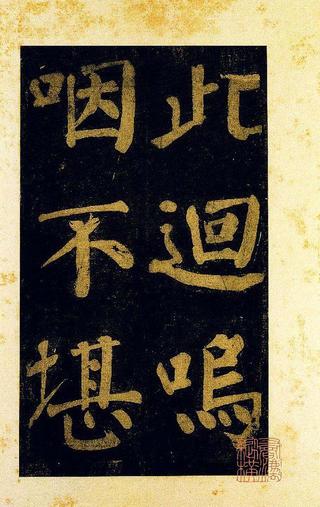 此迴嗚
咽不堪